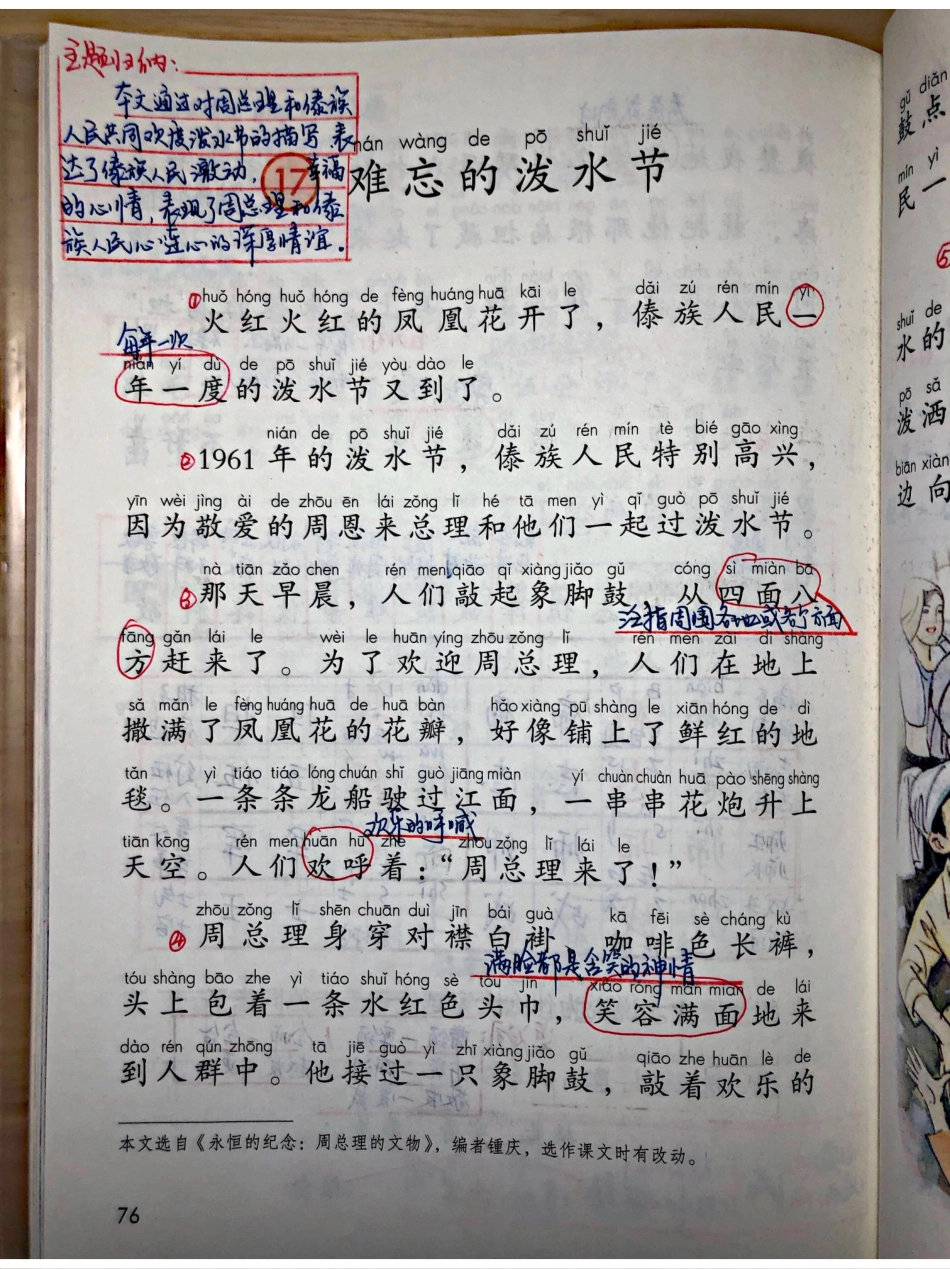 主题归纳:
本文通过对周总理和傣族
人民共同欢度泼水节的描写,表
达了傣族人民激动、幸福
的心情,表现了周总理和傣
族人民心连心的深厚情谊.
17
nán wàng de pō shuǐ jié
难忘的泼水节
huǒ hóng huǒ hóng de fèng huáng huā kāi le dǎi zú rén mín yì
①火红火红的凤凰花开了,傣族人民一
每年一次
nián yí dù de pō shuǐ jié yòu dào le
年一度的泼水节又到了。
nián de pō shuǐ jié dǎi zú rén mín tè bié gāo xìng
②1961年的泼水节,傣族人民特别高兴,
yīn wèi jìng ài de zhōu ēn lái zǒng lǐ hé tā men yì qǐ guò pō shuǐ jié
因为敬爱的周恩来总理和他们一起过泼水节。
nà tiān zǎo chen rén men qiāo qǐ xiàng jiǎo gǔ cóng sì miàn bā
③那天早晨,人们敲起象脚鼓,从四面八
泛指周围各地或各个方面
fāng gǎn lái le wèi le huān yíng zhōu zǒng lǐ rén men zài dì shàng
方赶来了。为了欢迎周总理,人们在地上
sǎ mǎn le fèng huáng huā de huā bàn hǎo xiàng pū shàng le xiān hóng de dì
撒满了凤凰花的花瓣,好像铺上了鲜红的地
tǎn yì tiáo tiáo lóng chuán shǐ guò jiāng miàn yí chuàn chuàn huā pào shēng shàng
毯。一条条龙船驶过江面,一串串花炮升上
欢乐的呼喊
tiān kōng rén men huān hū zhe zhōu zǒng lǐ lái le
天空。人们欢呼着:“周总理来了!”
zhōu zǒng lǐ shēn chuān duì jīn bái guà kā fēi sè cháng kù
④周总理身穿对襟白褂,咖啡色长裤,
满脸都是含笑的神情
tóu shàng bāo zhe yì tiáo shuǐ hóng sè tóu jīn xiào róng mǎn miàn de lái
头上包着一条水红色头巾,笑容满面地来
dào rén qún zhōng tā jiē guò yì zhī xiàng jiǎo gǔ qiāo zhe huān lè de
到人群中。他接过一只象脚鼓,敲着欢乐的
本文选自《永恒的纪念:周总理的文物》,编者锺庆,选作课文时有改动。
76
gǔ diǎn
鼓点
mín yì
民一
⑤
shuǐ de
水的
pō sǎ
泼洒
biān xiàn
边向